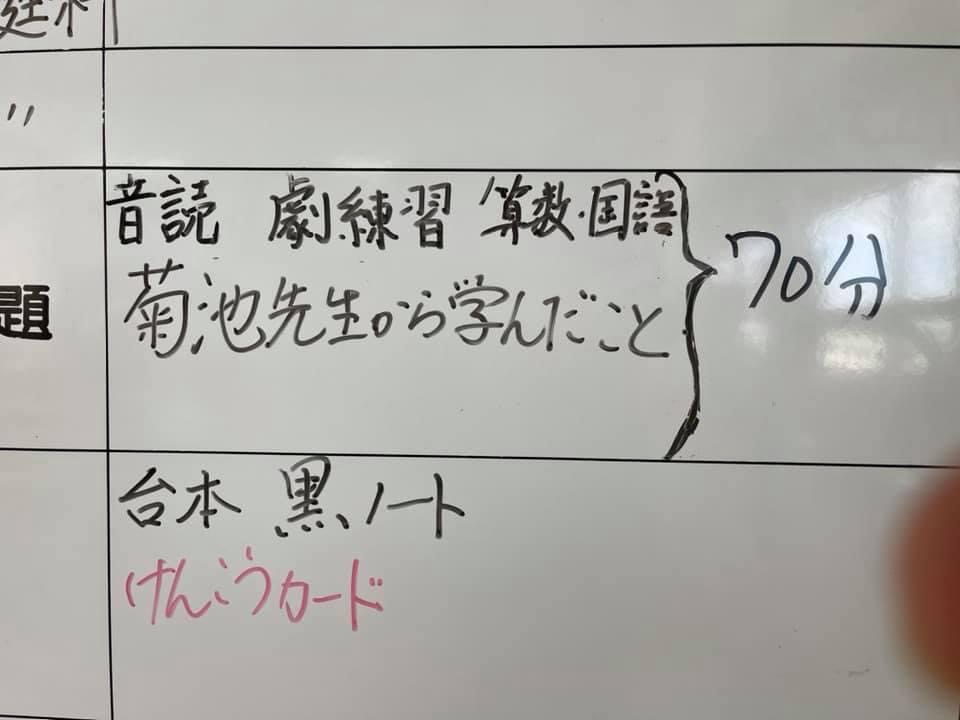 〃
音読 劇練習 算数・国語
菊池先生から学んだこと
70分
題
台本 黒ノート
けんこうカード